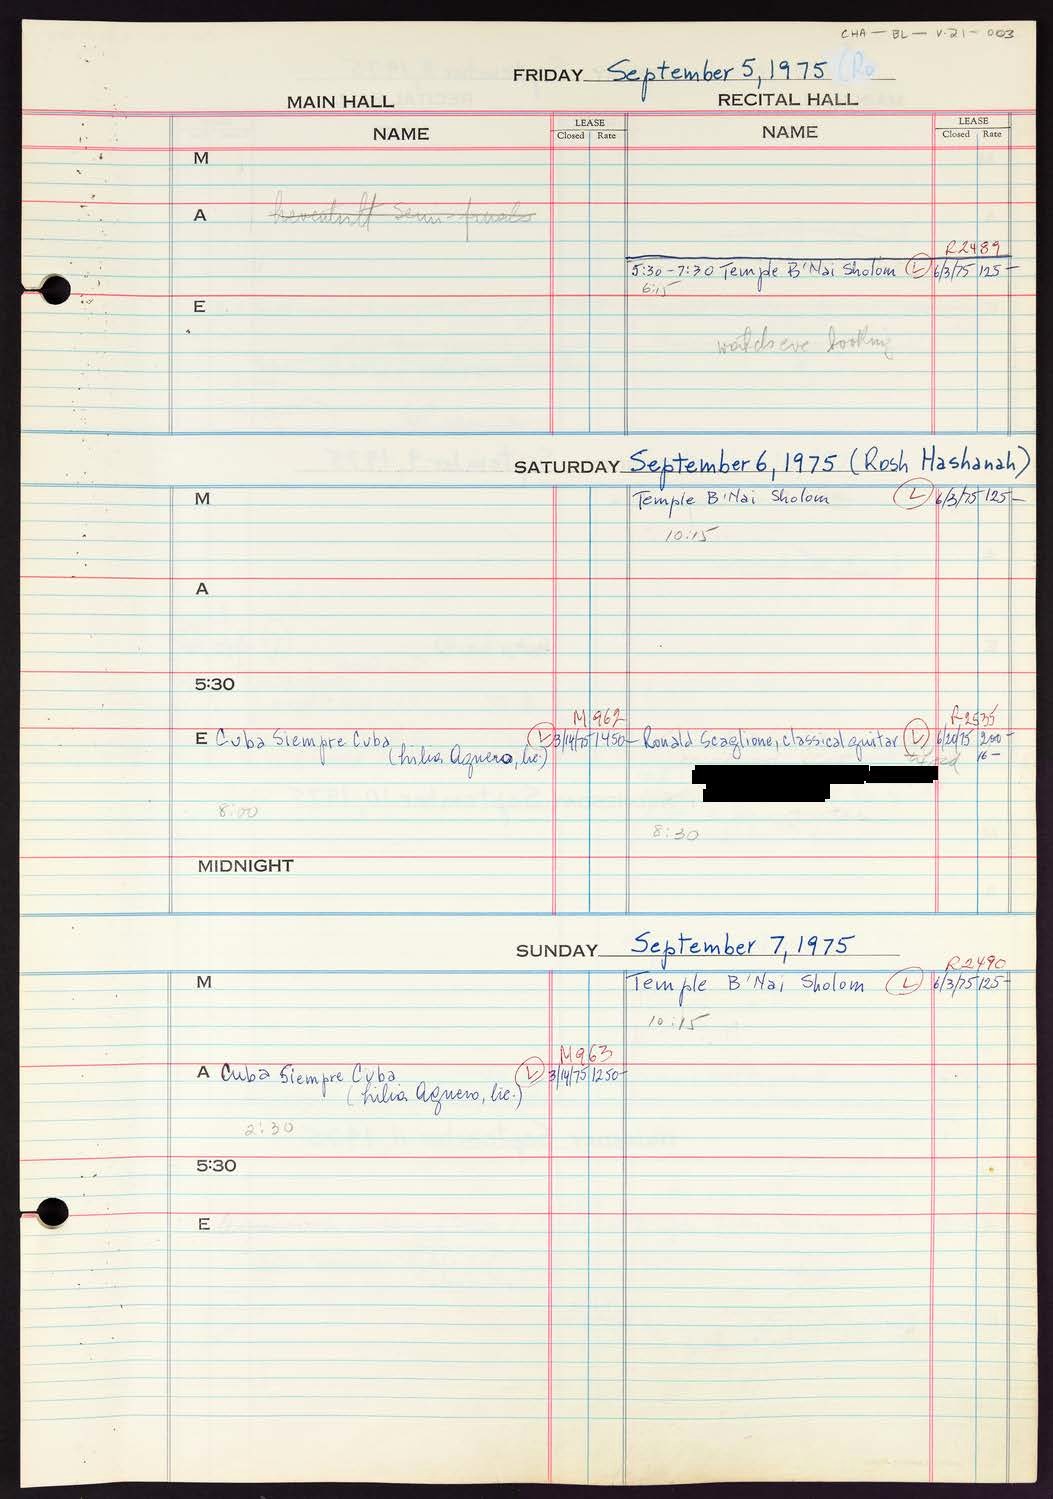 CHA - BL - V.21 - 003
FRIDAY September 5, 1975 (Ro
MAIN HALL RECITAL HALL
NAME LEASE Closed Rate NAME LEASE Closed Rate
M
A semi-finals
R2489
5:30 - 7:30 Temple B'Nai Sholom L 6/3/75 125-
6:15
E
booking
SATURDAY September 6, 1975 (Rosh Hashanah)
M Temple B'Nai Sholom L 6/3/75 125-
10:15
A
5:30
M 962 R2535
E Cuba Siempre Cuba L 3/14/75 1450- Ronald Scaglione, classical guitar L 6/20/75 200-
(Lilia Aguero, lic.) taped 16-
8:00
8:30
MIDNIGHT
SUNDAY September 7, 1975
R2490
M Temple B'Nai Sholom L 6/3/75 125-
10:15
M963
A Cuba Siempre Cuba L 3/14/75 1250-
(Lilia Aguero, lic.)
2:30
5:30
E